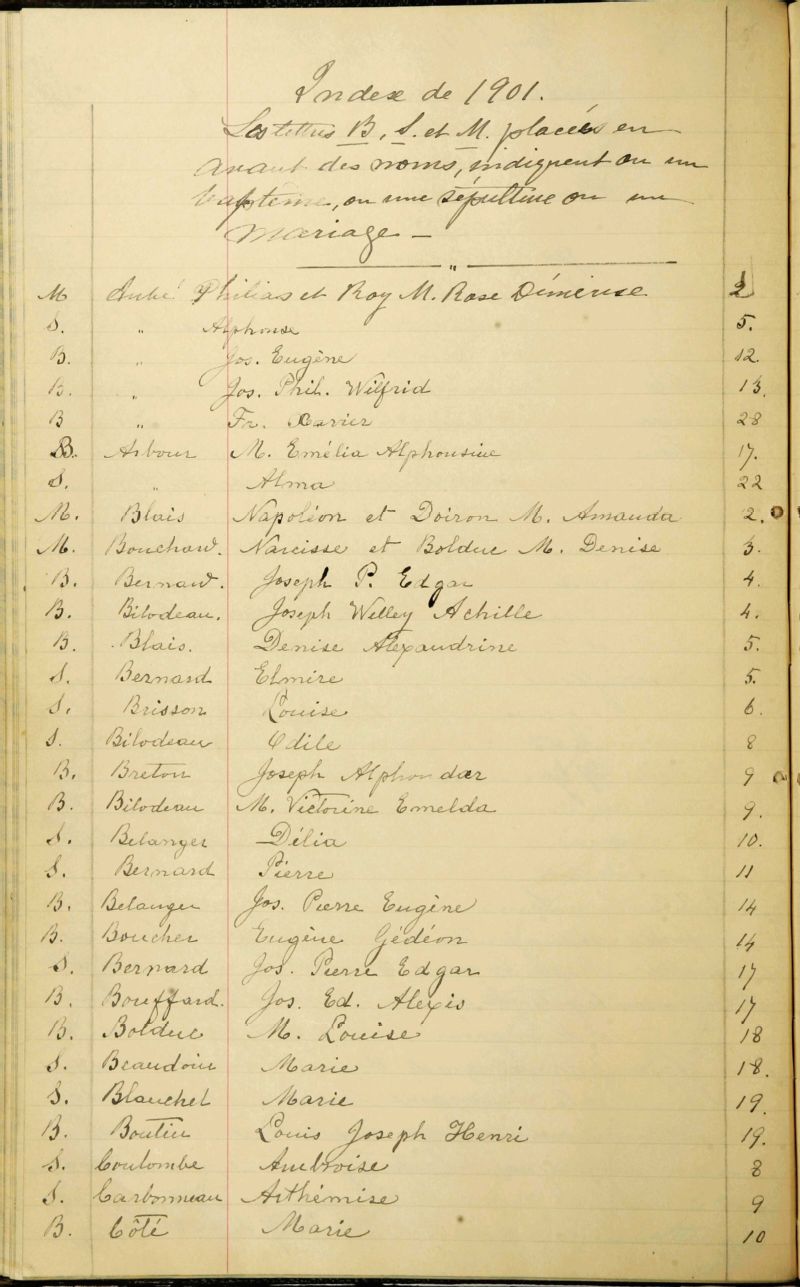 Index de 1901.
Les lettres B, S. et M. placées en
avant des noms, indiquent ou un
baptême, ou une sépulture ou un
mariage —
"
M Aubé Philias et Roy M. Rose Démérise 2
S. " Alphonse 5.
B. " Jos. Eugène 12.
B. " Jos. Phil. Wilfrid 13.
B " Fr. Xavier 28
B. Arbour M. Emélia Alphonsine 17.
S. " Alma 22
M. Blais Napoléon et Doiron M. Amanda 2.
M. Bouchard. Narcisse et Bolduc M. Denise 3.
B. Bernard. Joseph P. Edgar 4.
B. Bilodeau. Joseph Willey Achille 4.
B. Blais. Denise Alexandrine 5.
S. Bernard Elmire 5.
S. Brisson Louise 6.
S. Bilodeau Odile 8
B. Breton Joseph 9
B. Bilodeau M. Victorine Emelda 9.
S. Belanger Délia 10.
S. Bernard Pierre 11
B. Belanger Jos. Pierre Eugène 14
B. Boucher Eugène Gédéon 14
S. Bernard Jos. Pierre Edgar 17
B. Bouffard. Jos. Ed. Alexis 17
B. Bolduc M. Louise 18
S. Beaudoin Marie 18.
S. Blanchet Marie 19.
B. Boutin Louis Joseph Henri 19.
S. Coulombe Ambroise 8
S. Carbonneau Arthémise 9
B. Côté Marie 10